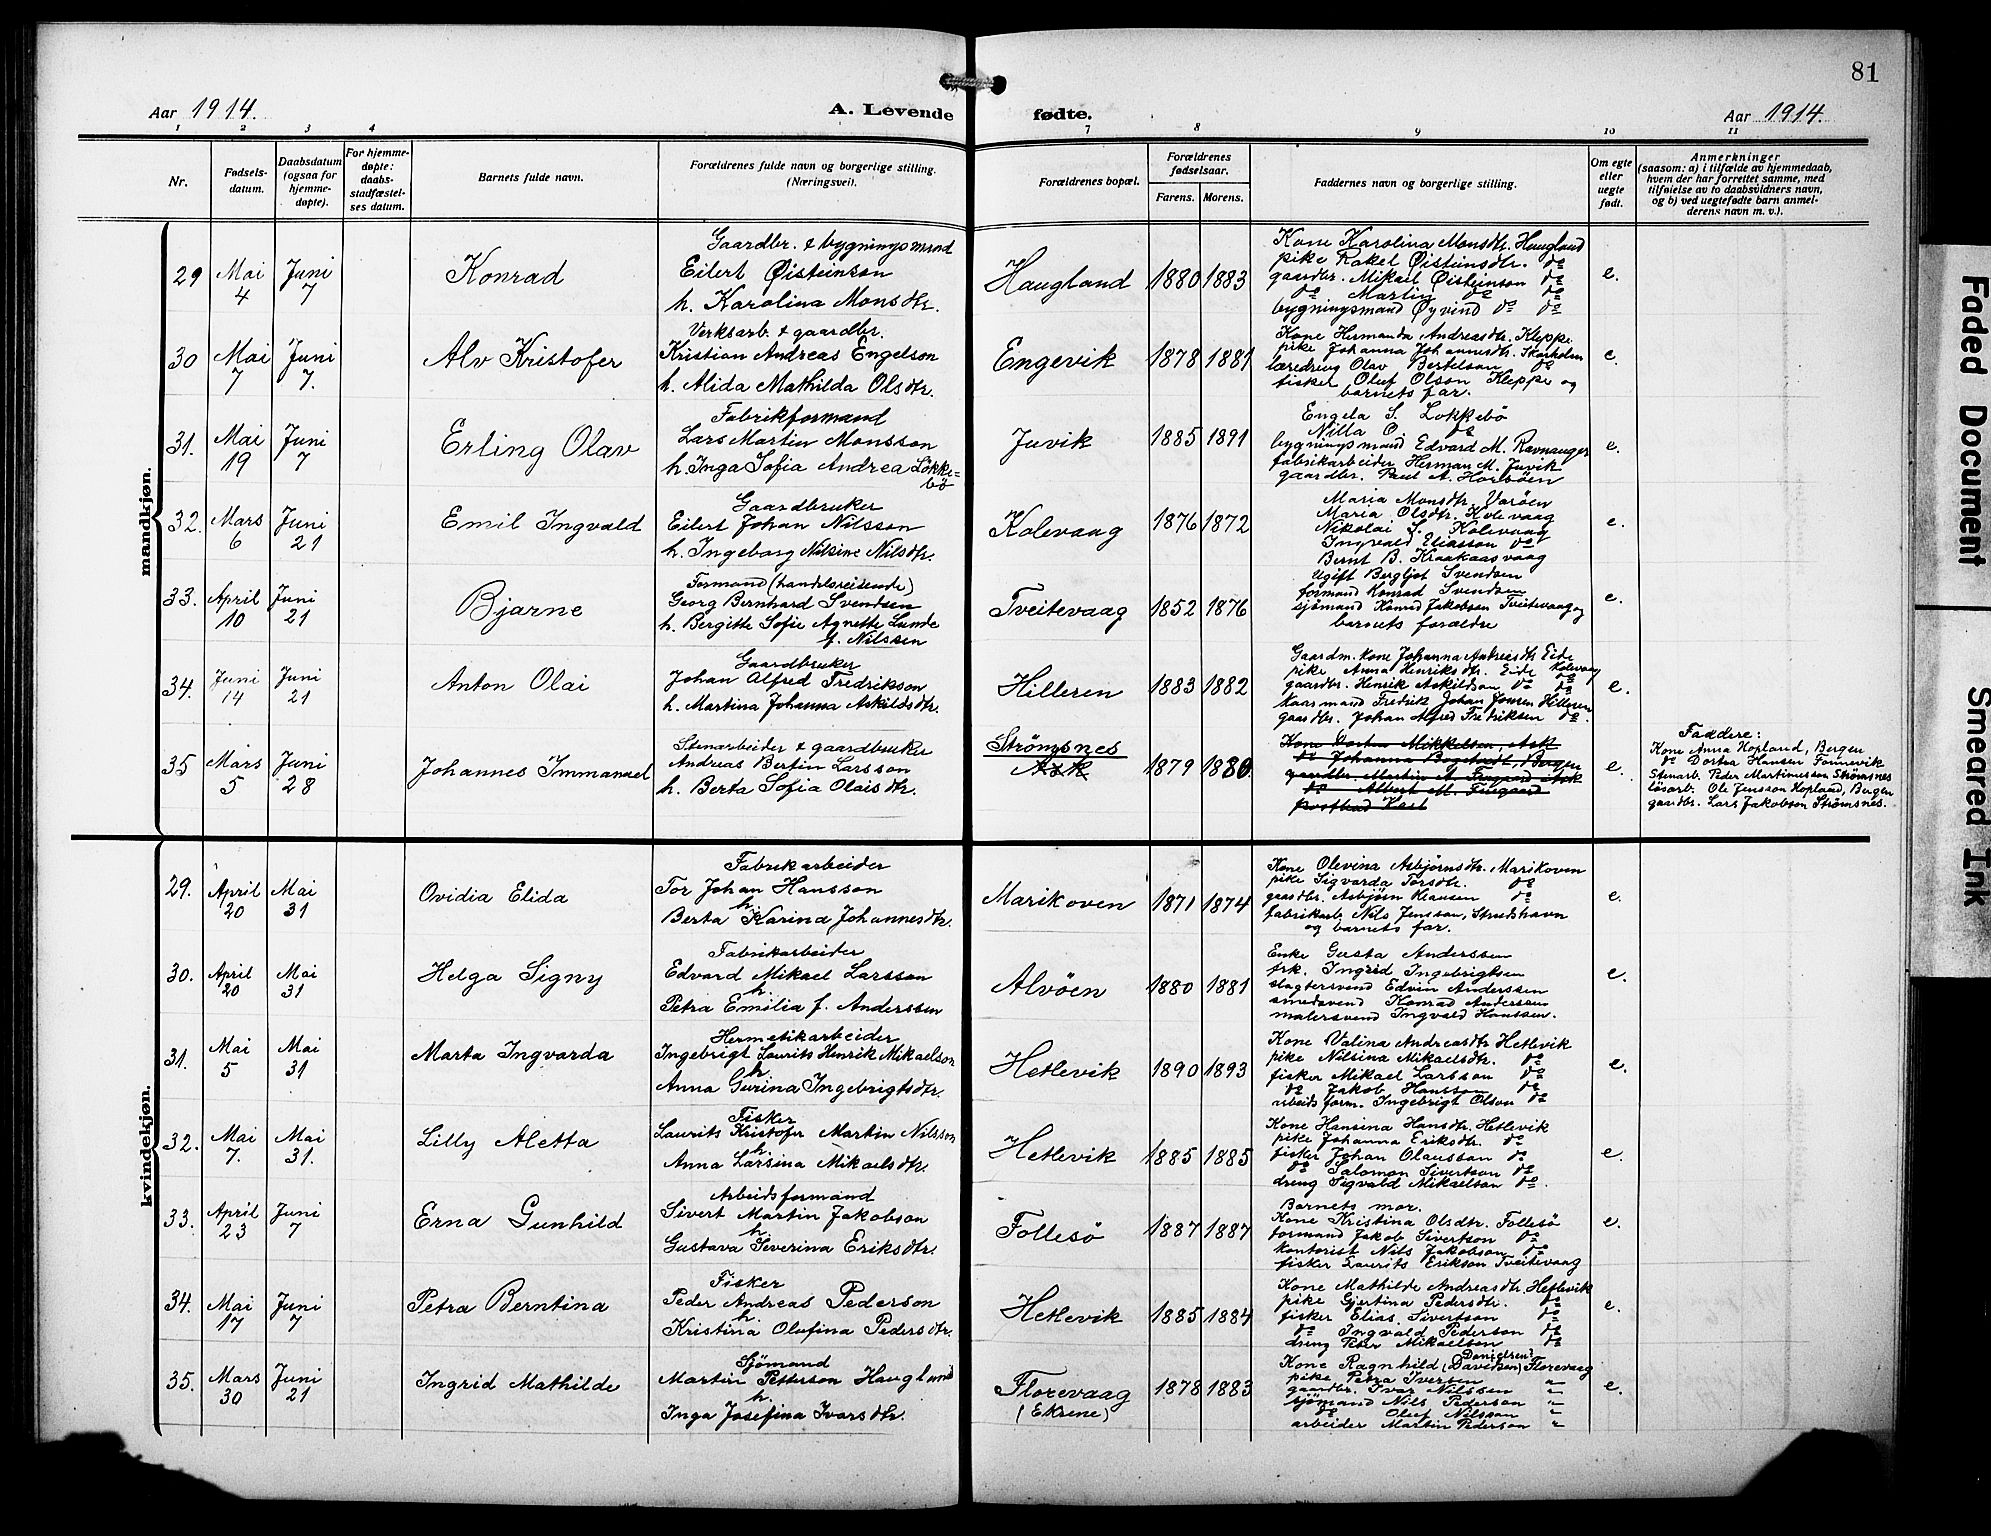 81
Aar 1914.
A. Levende fødte.
Aar 1914.
1 2 3 4 7 8 9 10 11
Nr.
Fødsels-
datum.
Daabsdatum
(ogsaa for
hjemme-
døpte).
For hjemme-
døpte:
daabs-
stadfæstel-
ses datum.
Barnets fulde navn.
Forældrenes fulde navn og borgerlige stilling.
(Næringsvei).
Forældrenes bopæl.
Forældrenes
fødselsaar.
Farens. Morens.
Faddernes navn og borgerlige stilling.
Om egte
eller
uegte
født.
Anmerkninger
(saasom: a) i tilfælde av hjemmedaab,
hvem der har forrettet samme, med
tilføielse av to daabsvidners navn,
og b) ved uegtefødte barn anmel-
derens navn m. v.).
mandkjøn.
29 Mai 4 Juni 7 Konrad
Gaardbr. & bygningsmand
Eilert Øisteinson
h. Karolina Monsdtr.
Haugland 1880 1883
Kone Karolina Monsdtr. Haugland
pike Rakel Øisteinsdtr. do
gaardbr. Mikael Øisteinson do
do Martin do do
bygningsmand Øyvind do do
e.
30 Mai 7 Juni 7. Alv Kristofer
Verksarb. & gaardbr.
Kristian Andreas Engelson
h. Alida Mathilda Olsdtr.
Engevik 1878 1881
Kone Hermanda Andreasdtr. Kleppe
pike Johanna Johannesdtr. Skarholm
læredreng Olav Bertelson do
fisker Oluf Olson Kleppe og
barnets far.
e.
31. Mai 19 Juni 7 Erling Olav
Fabrikformand
Lars Martin Monsson
h. Inga Sofia Andrea Løkke-
bø
Juvik 1885 1891
Engela S. Løkkebø
Nilla O. do
bygningsmand Edvard M. Ravnanger
fabrikarbeider Herman M. Juvik
gaardbr. Paul A. Horbøen
e.
32. Mars 6 Juni 21 Emil Ingvald
Gaardbruker
Eilert Johan Nilsson
h. Ingeborg Nilsine Nilsdtr.
Kolevaag 1876 1872
Maria Monsdtr. Varøen
Maria Olsdtr. Kolevaag
Nikolai S. Kolevaag
Ingvald Eliasson do
Bernt B. Kraakaasvaag
e.
33. April 10 Juni 21 Bjarne
Formand (handelsreisende)
Georg Bernhard Svendsen
h. Bergitte Sofie Agnette Lunde
f. Nilssen
Tveitevaag 1852 1876
Ugift Bergljot Svendsen
formand Konrad Svendsen
sjømand Konrad Jakobsen Tveitevaag og
barnets forældre
e.
34. Juni 14 Juni 21 Anton Olai
Gaardbruker
Johan Alfred Fredrikson
h. Martina Johanna Askildsdtr.
Hilleren 1883 1882
Gaardm. kone Johanna Andreasdtr Eide
pike Anna Henriksdtr. Eide Kolevaag
gaardbr. Henrik Askildson do do
kaarmand Fredrik Johan Jonsen Hilleren
gaardbr. Johan Alfred Fredriksen do
e.
35 Mars 5 Juni 28 Johannes Immanuel
Stenarbeider & gaardbruker
Andreas Bertin Larsson
h. Berta Sofia Olaisdtr.
Strømsnes
Ask
1879 1880.
Kone Dortea Mikkelsen, Ask
do Johanna Bogstadt, Bergen
gaardbr. Martin A. Frugaard Ask
do Albert M. Frugaard
postbud
e.
Faddere:
Kone Anna Hopland, Bergen
do Dortea Hansen Fonnevik
Stenarb. Peder Martinusson Strømsnes
løsarb. Ole Jensson Hopland, Bergen
gaardbr. Lars Jakobson Strømsnes.
kvindekjøn.
29. April 20 Mai 31 Ovidia Elida
Fabrikarbeider
Tor Johan Hansson
h.
Berta Karina Johannesdtr.
Marikoven 1871 1874
Kone Olevina Asbjørnsdtr. Marikoven
pike Sigvarda Torsdtr. do
gaardbr. Asbjørn Klausen do
fabrikarb. Nils Jensson, Strudshavn
og barnets far.
e.
30. April 20 Mai 31 Helga Signy
Fabrikarbeider
Edvard Mikael Larsson
h.
Petra Emilia f. Anderssen
Alvøen 1880 1881
Enke Gusta Anderssen
frk. Ingrid Ingebrigtsen
slagtersvend Edvin Anderssen
smedsvend Konrad Anderssen
malersvend Ingvald Hanssen.
e.
31. Mai 5 Mai 31 Marta Ingvarda
Hermetikarbeider
Ingebrigt Laurits Henrik Mikaelson
h.
Anna Gurina Ingebrigtsdtr.
Hetlevik 1890 1893
Kone Valina Andreasdtr Hetlevik
pike Nilsina Mikaelsdtr. do
fisker Mikael Larsson do
do Jakob Hansson do
arbeidsform. Ingebrigt Olson do
e.
32. Mai 7. Mai 31. Lilly Aletta
Fisker
Laurits Kristofer Martin Nilsson
h.
Anna Larsina Mikaelsdtr.
Hetlevik 1885 1885
Kone Hansina Hansdtr. Hetlevik
pike Johanna Eriksdtr. do
fisker Johan Olausson do
do Salomon Sivertson do
dreng Sigvald Mikaelson do.
e.
33. April 23 Juni 7 Erna Gunhild
Arbeidsformand
Sivert Martin Jakobson
h.
Gustava Severina Eriksdtr.
Follesø 1887 1887
Barnets mor.
Kone Kristina Olsdtr. Follesø
formand Jakob Sivertson do
kontorist Nils Jakobson do
fisker Laurits Erikson Tveitevaag
e.
34. Mai 17 Juni 7 Petra Berntina
Fisker
Peder Andreas Pederson
h.
Kristina Olufina Pedersdtr.
Hetlevik 1885 1884
Kone Mathilde Andreasdtr. Hetlevik
pike Gjertina Pedersdtr. do
fisker Elias Sivertson do
do Ingvald Pederson do
dreng Peter Mikaelson do
e.
35. Mars 30 Juni 21 Ingrid Mathilde
Sjømand
Martin Petterson Haugland
h.
Inga Josefina Ivarsdtr.
Florevaag
(Ekrene)
1878 1883
Danielsen?
Kone Ragnhild (Davidsen) Florevaag
pike Petra Iversen "
gaardbr. Ivar Nilssen "
sjømand Nils Pederson "
do Oluf Nilsson "
arbeider Martin Pederson "
e.
Faded Document
Smeared Ink